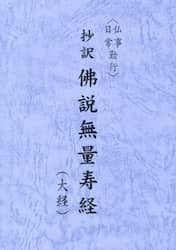 〈仏事
日常勤行〉
抄訳 佛説無量寿経
(大経)